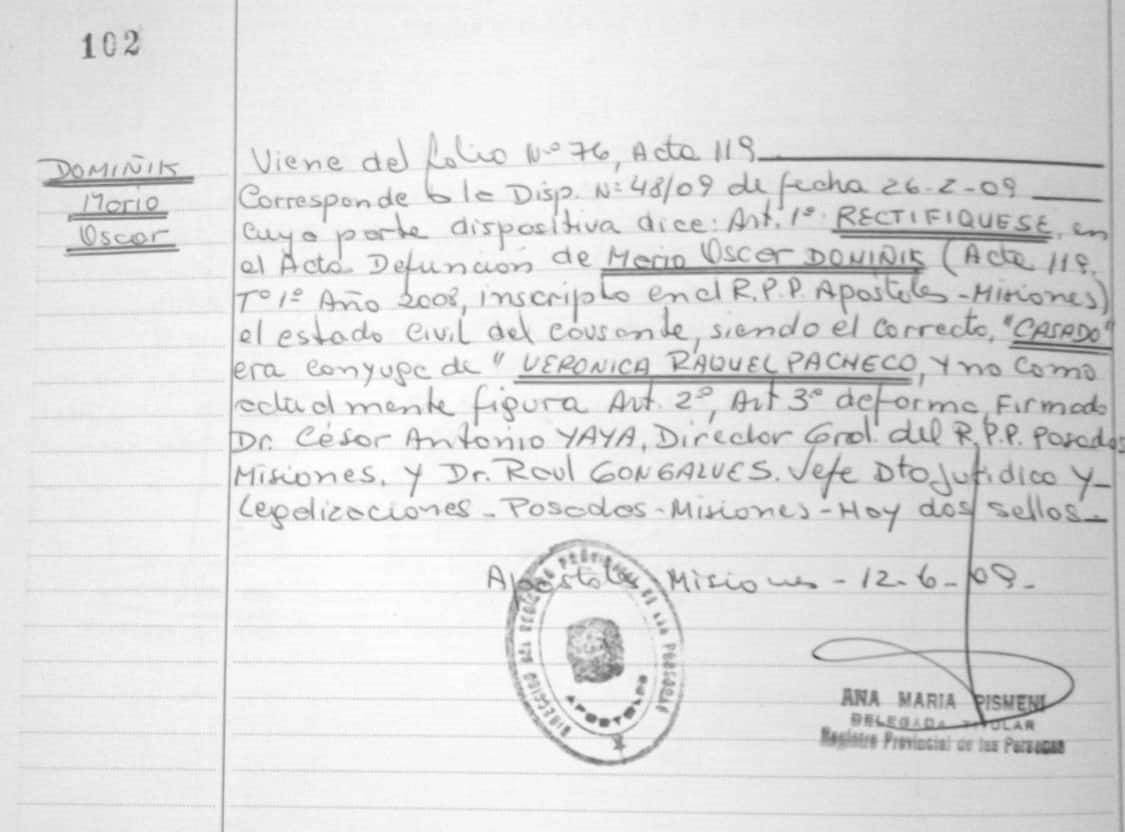 102
DOMIÑIK
Mario
Oscar
Viene del folio Nº 76, Acta 119
Corresponde a la Disp. Nº 48/09 de fecha 26-2-09
cuya parte dispositiva dice: Art. 1º RECTIFIQUESE, en
el Acta Defunción de Mario Oscar DOMIÑIK (Acta 119.
Tº 1º Año 2008, inscripto en el R.P.P. Apostoles - Misiones)
el estado civil del causante, siendo el correcto, "CASADO"
era conyuge de " VERONICA RAQUEL PACHECO, y no como
actualmente figura Art. 2º, Art 3º de forma, Firmado
Dr. César Antonio YAYA, Director Gral. del R.P.P. Posadas
Misiones, y Dr. Raul GONGALVES. Jefe Dto Jurídico y
Legalizaciones - Posadas - Misiones - Hay dos sellos -
Apostoles Misiones - 12-6-09.-
DIRECCION DEL REGISTRO PROVINCIAL DE LAS PERSONAS
APOSTOLES
ANA MARIA PISMENI
DELEGADA TITULAR
Registro Provincial de las Personas